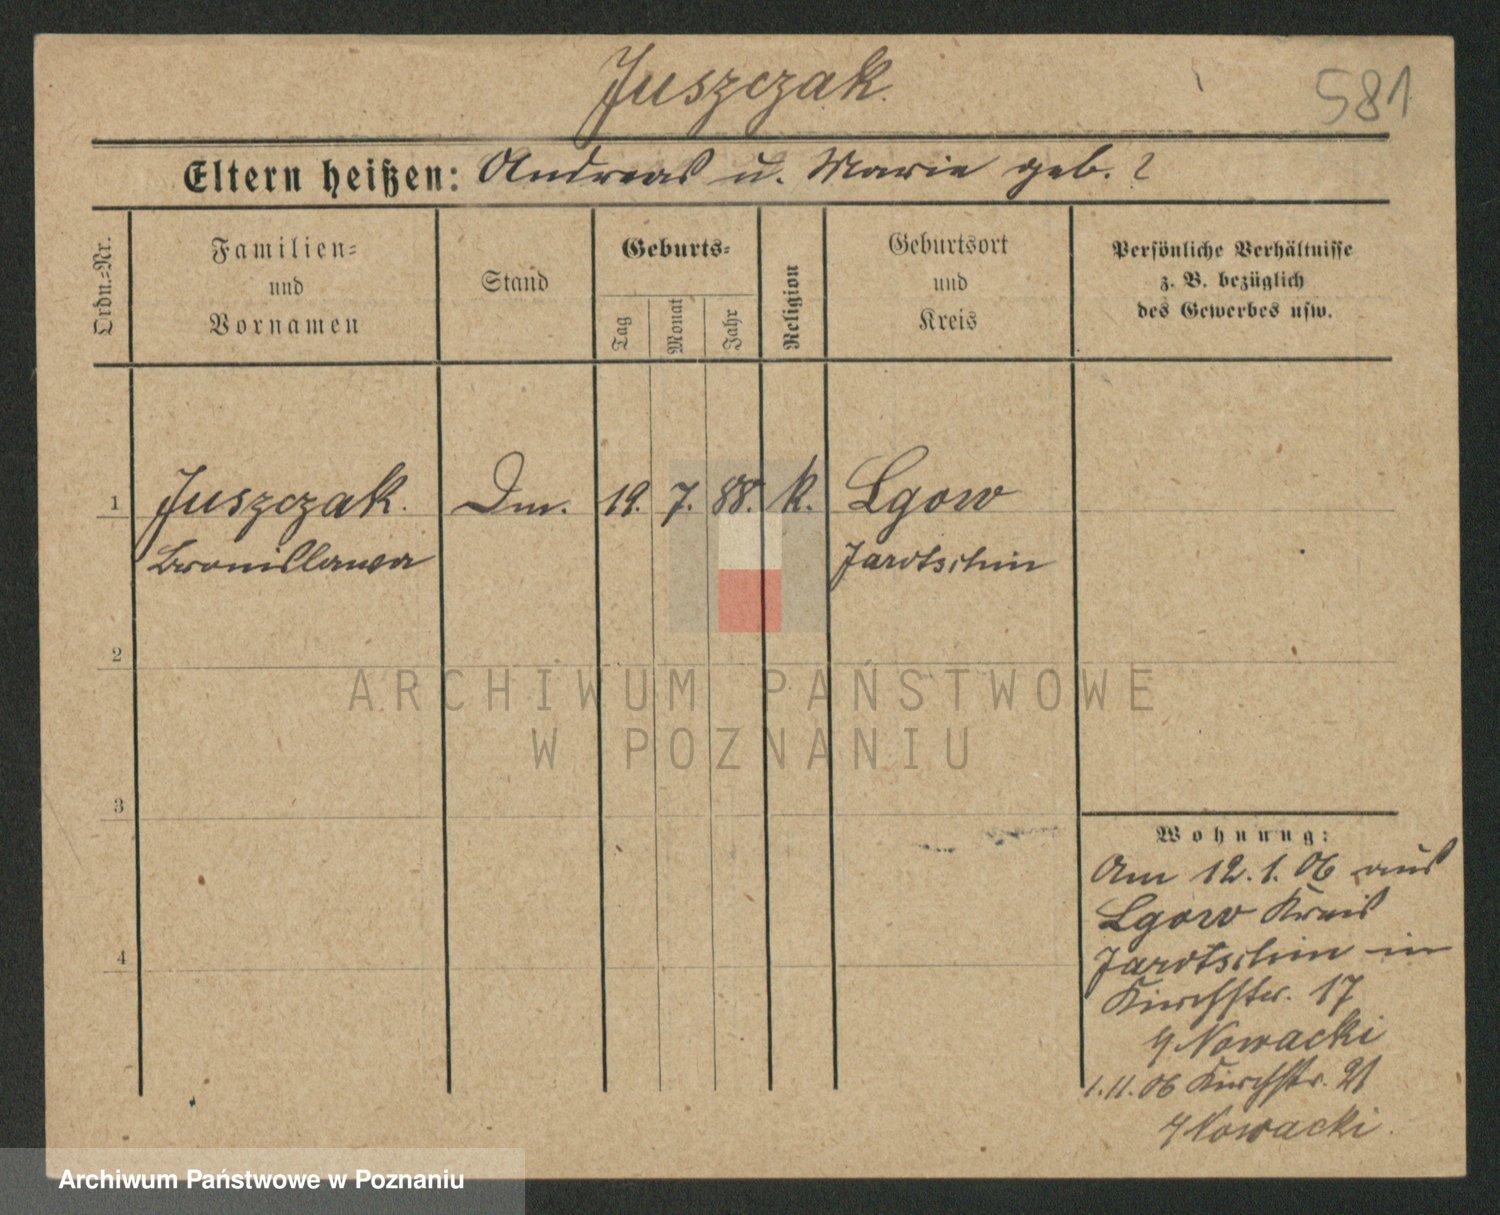 Juszczak
581
Eltern heißen: Andreas u. Marie geb. ?
Ordn.=Nr.
Familien=
und
Vornamen
Stand
Geburts=
Tag
Monat
Jahr
Religion
Geburtsort
und
Kreis
Persönliche Verhältnisse
z. B. bezüglich
des Gewerbes usw.
1 Juszczak. Dm. 19. 7. 88. k. Lgow
Bronislawa Jarotschin
2
ARCHIWUM PAŃSTWOWE
W POZNANIU
3
Wohnung:
Am 12.1.06 aus
Lgow Kreis
4
Jarotschin in
Kirchstr. 17
Nowacki
1.11.06 Kirchstr. 21
Nowacki.
Archiwum Państwowe w Poznaniu